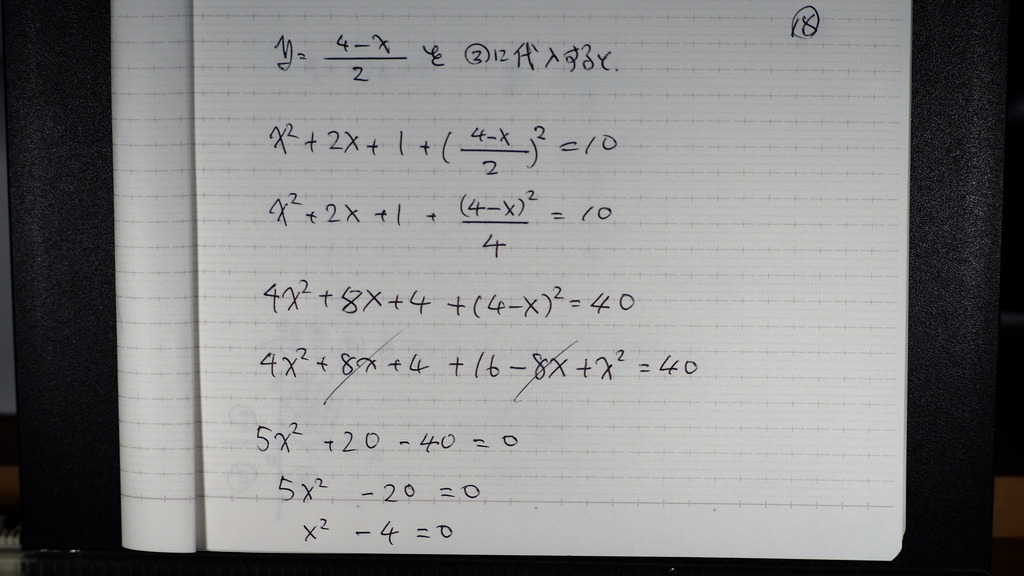 ⑱
y = (4-x)/2 を ③に代入すると.
x² + 2x + 1 + ((4-x)/2)² = 10
x² + 2x + 1 + (4-x)²/4 = 10
4x² + 8x + 4 + (4-x)² = 40
4x² + 8x + 4 + 16 - 8x + x² = 40
5x² + 20 - 40 = 0
5x² - 20 = 0
x² - 4 = 0